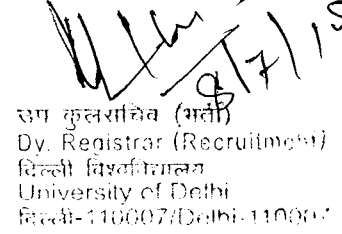 8/7/15
उप कुलसचिव (भर्ती)
Dy. Registrar (Recruitment)
दिल्ली विश्वविद्यालय
University of Delhi
दिल्ली-110007/Delhi-110007